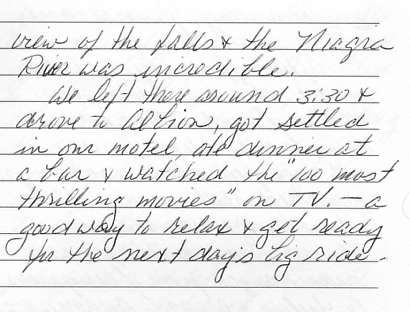 view of the falls & the Niagra
River was incredible.
We left there around 3:30 &
drove to Albion, got settled
in our motel, ate dinner at
a bar & watched the "100 most
thrilling movies" on TV. — a
good way to relax & get ready
for the next day's big ride.